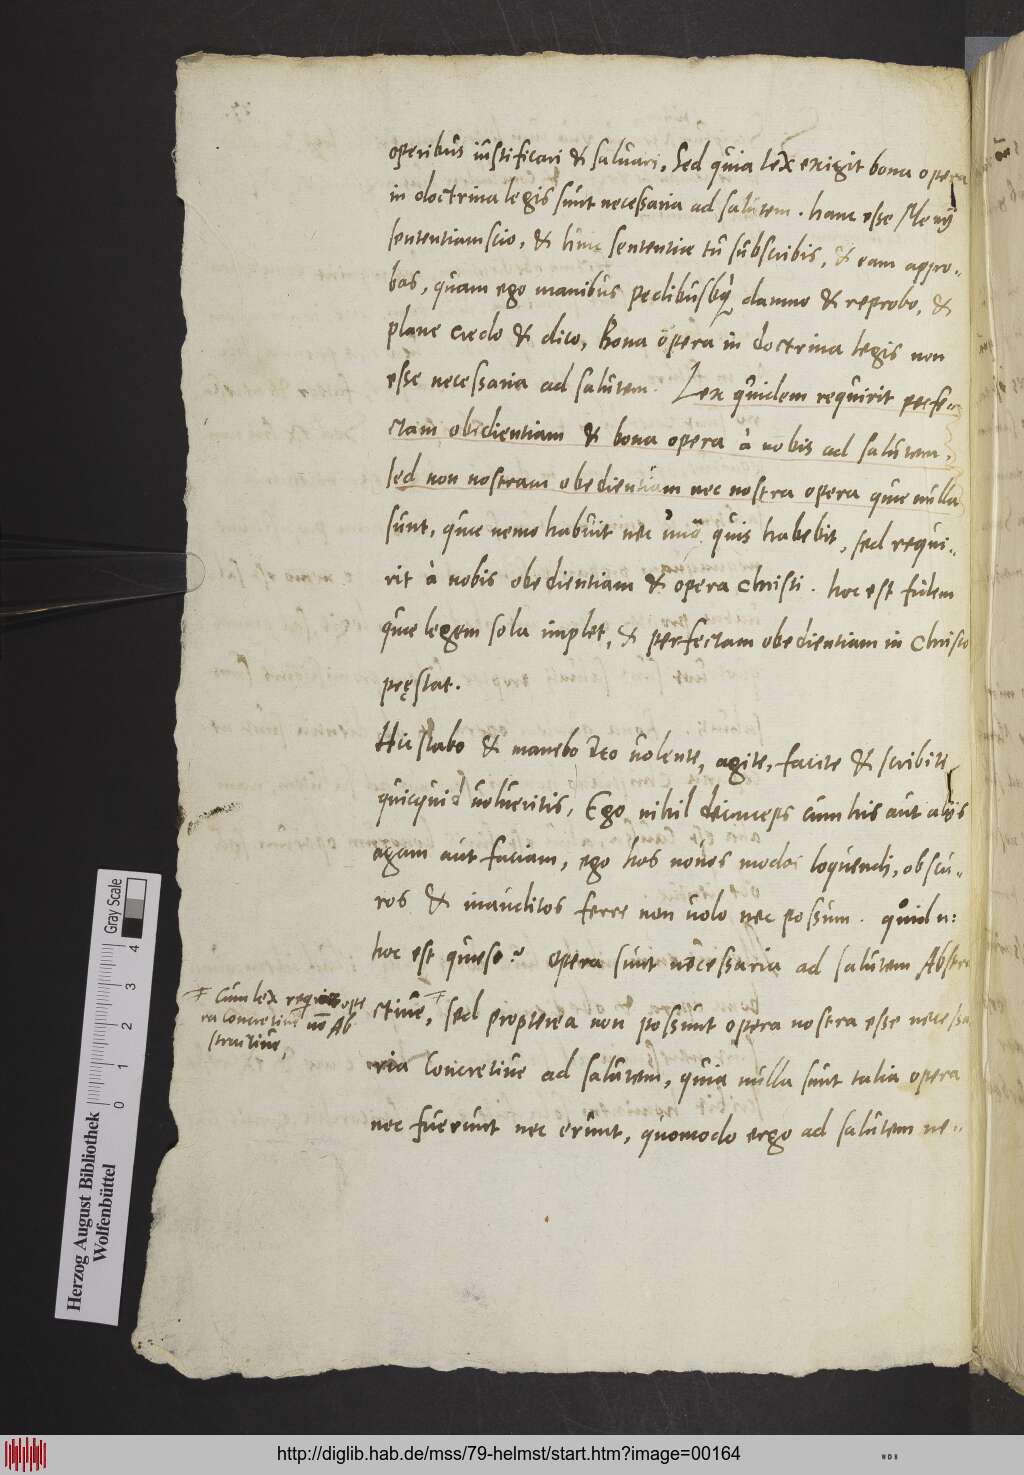 operibus iustificari & saluari, Sed quia lex exigit bona opera
in doctrina legis sunt necessaria ad salutem. hanc esse Menij
sententiam scio, & huic sententiæ tu subscribis, & eam appro-
bas, quam ego manibus pedibusq; damno & reprobo, &
plane credo & dico, Bona opera in doctrina legis non
esse necessaria ad salutem. Lex quidem requirit perfe-
ctam obedientiam & bona opera à nobis ad salutem,
sed non nostram obedientiam nec nostra opera quæ nulla
sunt, quæ nemo habuit nec quis habebit, sed requi-
rit à nobis obedientiam & opera Christi. hoc est fidem
quæ legem sola implet, & perfectam obedientiam in Christo
pręstat.
Hic stabo & manebo Deo uolente, agite, facite & scribite
quicquid uolueritis, Ego nihil deinceps cum his aut alijs
agam aut faciam, ego hos nouos modos loquendi, obscu-
ros & inauditos ferre non uolo nec possum. quid n:
hoc est quæso? opera sunt necessaria ad salutem Abstra
ctiue, sed propterea non possunt opera nostra esse necessa
ria Concretiue ad salutem, quia nulla sunt talia opera
nec fuerunt nec erunt, quomodo ergo ad salutem ne-
Cum lex requirit ope
ra Concretiue nõ Ab
stractiue,
Herzog August Bibliothek
Wolfenbüttel
Gray Scale
0 1 2 3 4
http://diglib.hab.de/mss/79-helmst/start.htm?image=00164